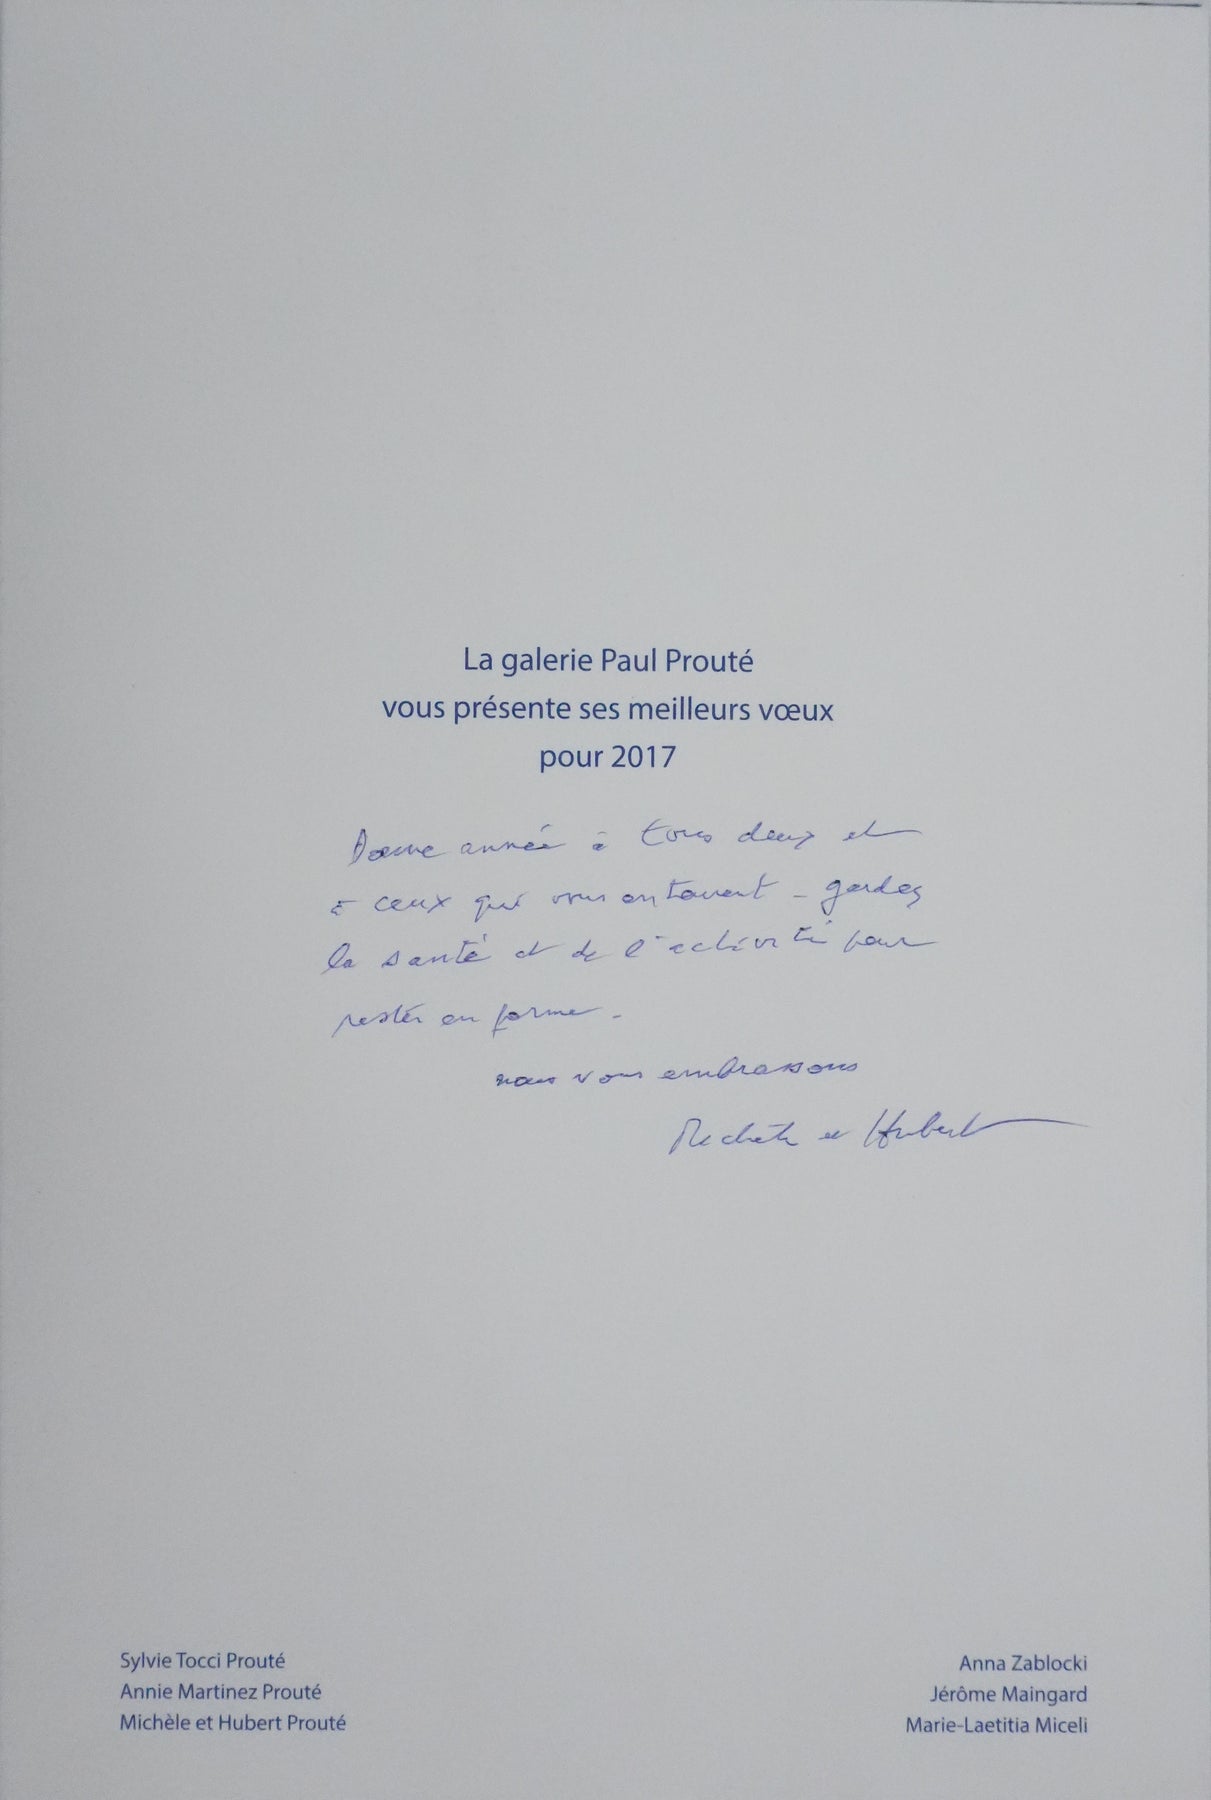 La galerie Paul Prouté
vous présente ses meilleurs vœux
pour 2017
Bonne année à tous deux et
à ceux qui vous entourent - gardez
la santé et de l'activité pour
rester en forme -
nous vous embrassons
Michèle et Hubert
Sylvie Tocci Prouté
Annie Martinez Prouté
Michèle et Hubert Prouté
Anna Zablocki
Jérôme Maingard
Marie-Laetitia Miceli